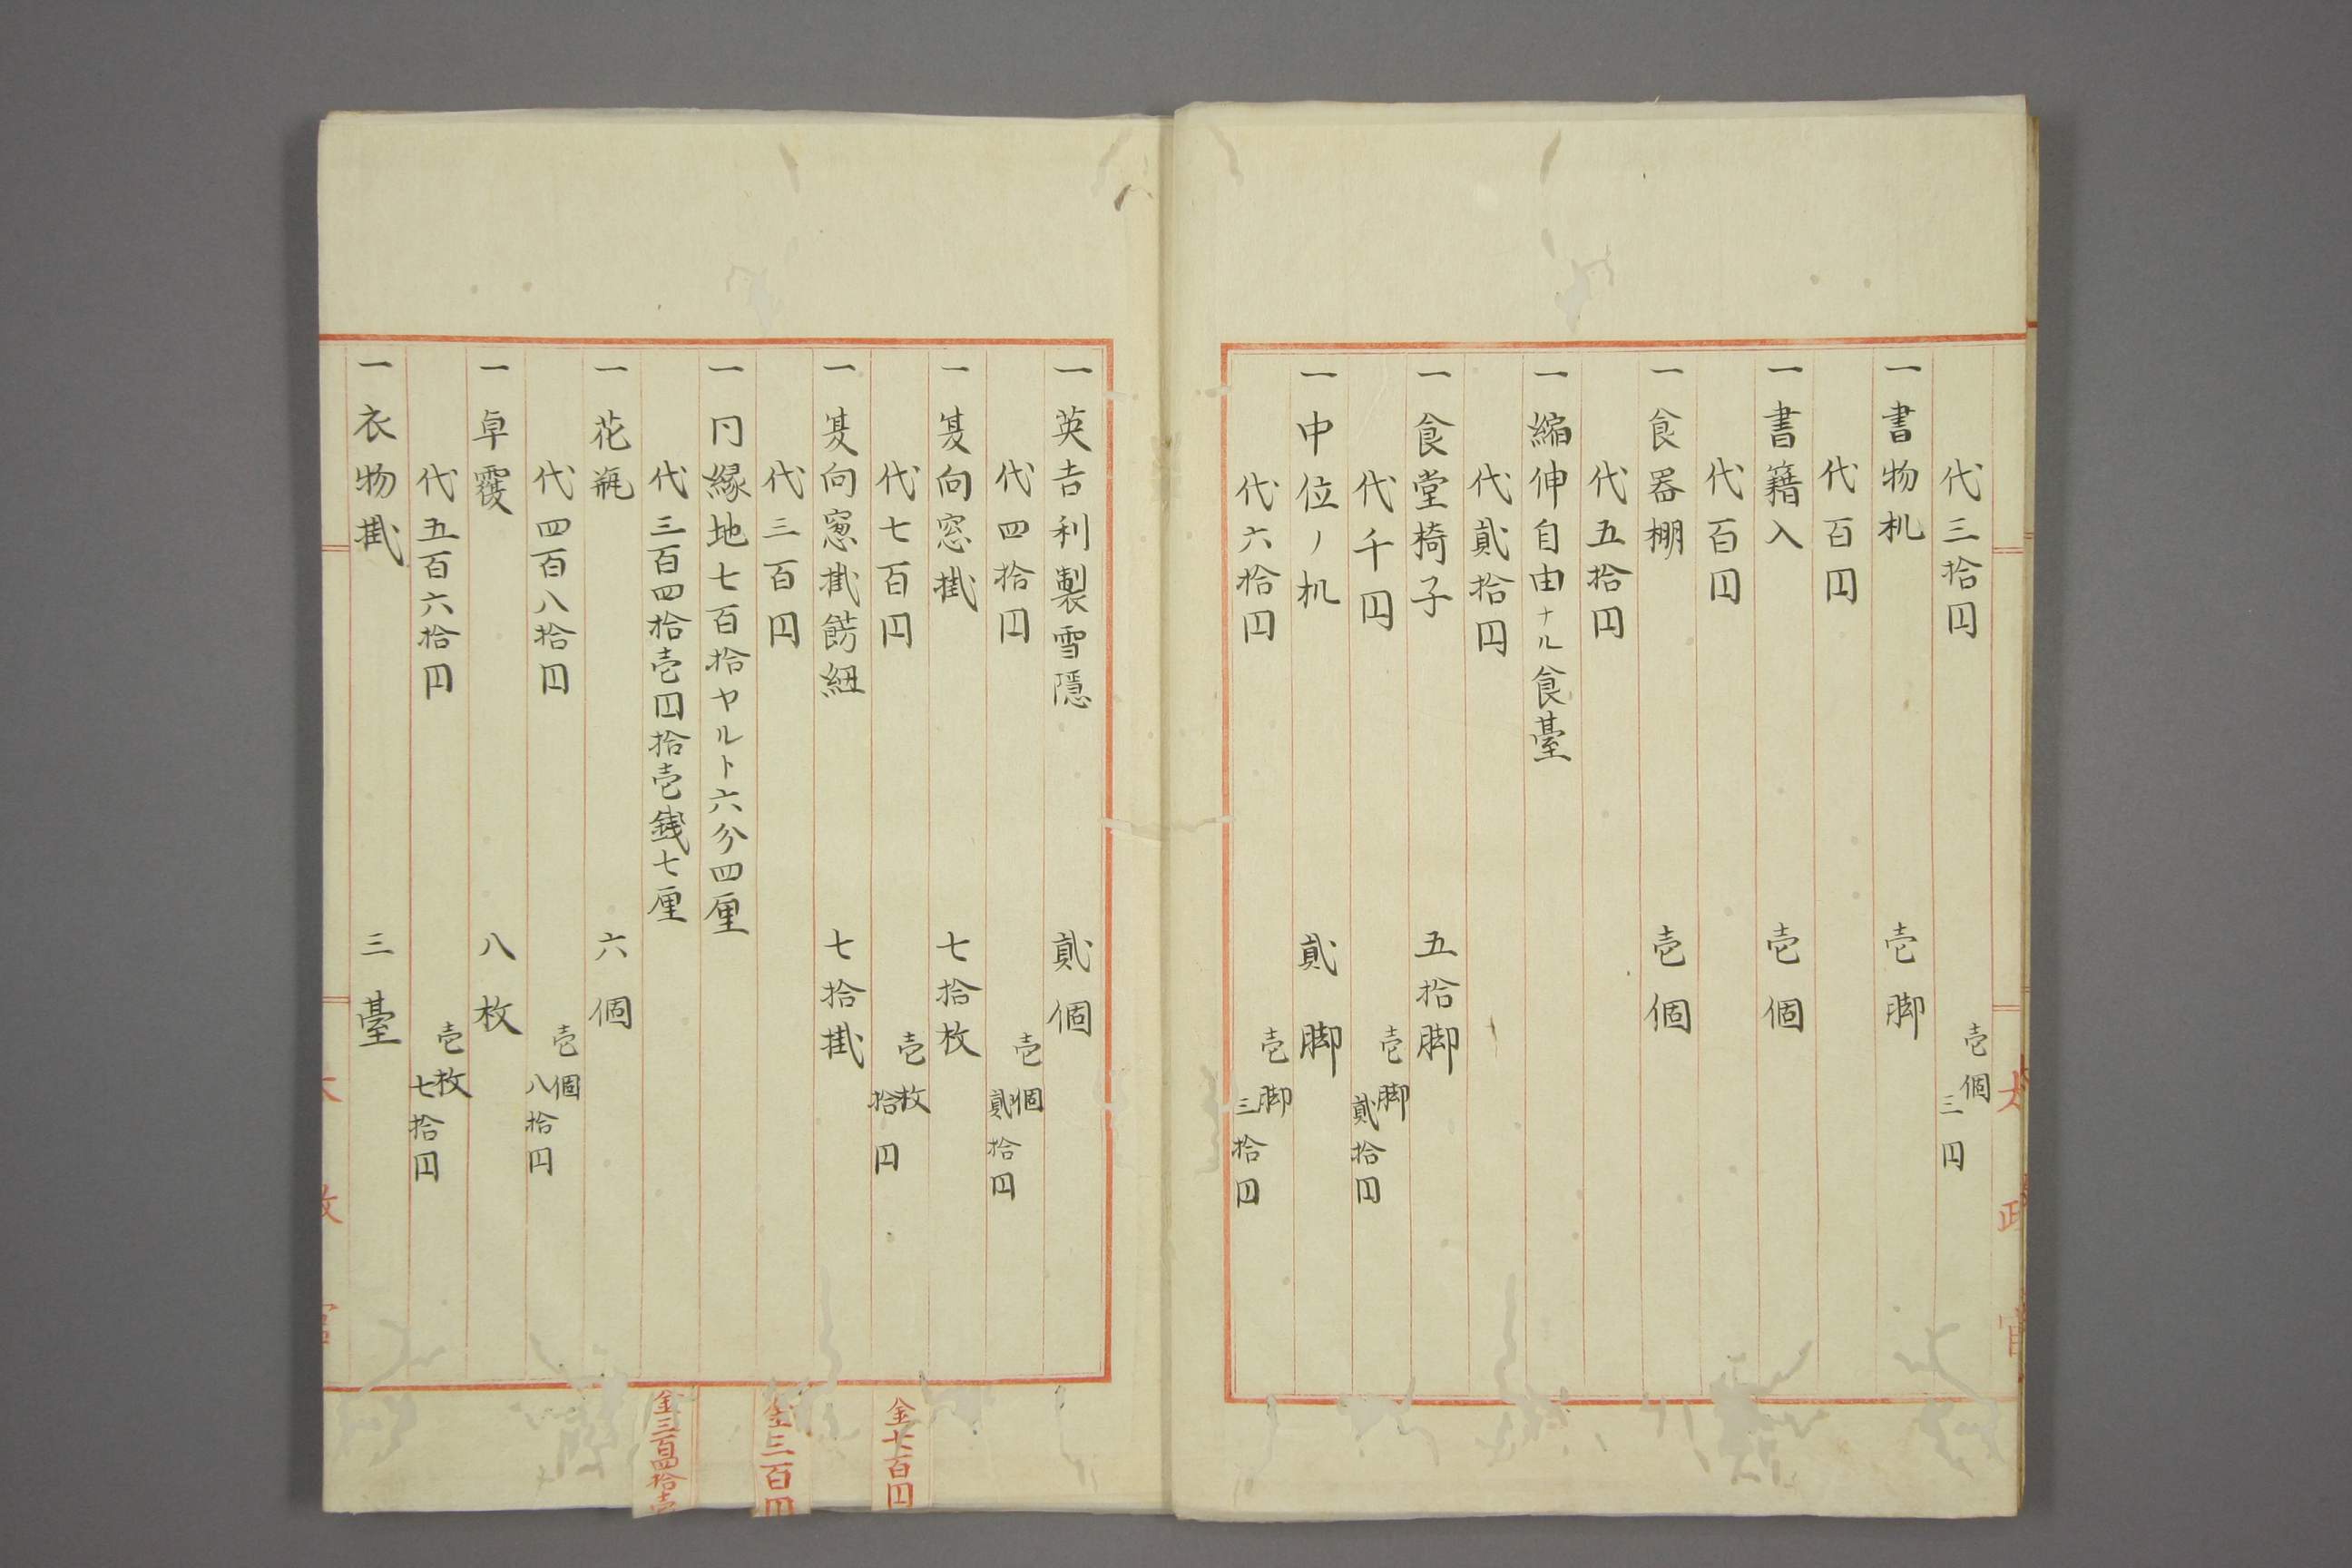 太政官
代三拾円 壱個 三円
一書物机 壱脚
代百円
一書籍入 壱個
代百円
一食器棚 壱個
代五拾円
一縮伸自由ナル食臺
代貮拾円
一食堂椅子 五拾脚
代千円 壱脚 貮拾円
一中位ノ机 貮脚
代六拾円 壱脚 三拾円
一英吉利製雪隠 貮個
代四拾円 壱個 貮拾円
一夏向窓掛 七拾枚
代七百円 壱枚 拾円
金七百円
一夏向窓掛餝紐 七拾掛
代三百円
金三百円
一円縁地七百拾ヤルト六分四厘
代三百四拾壱円拾壱銭七厘
金三百四拾壱
一花瓶 六個
代四百八拾円 壱個 八拾円
一卓覆 八枚
代五百六拾円 壱枚 七拾円
一衣物掛 三臺
太政官